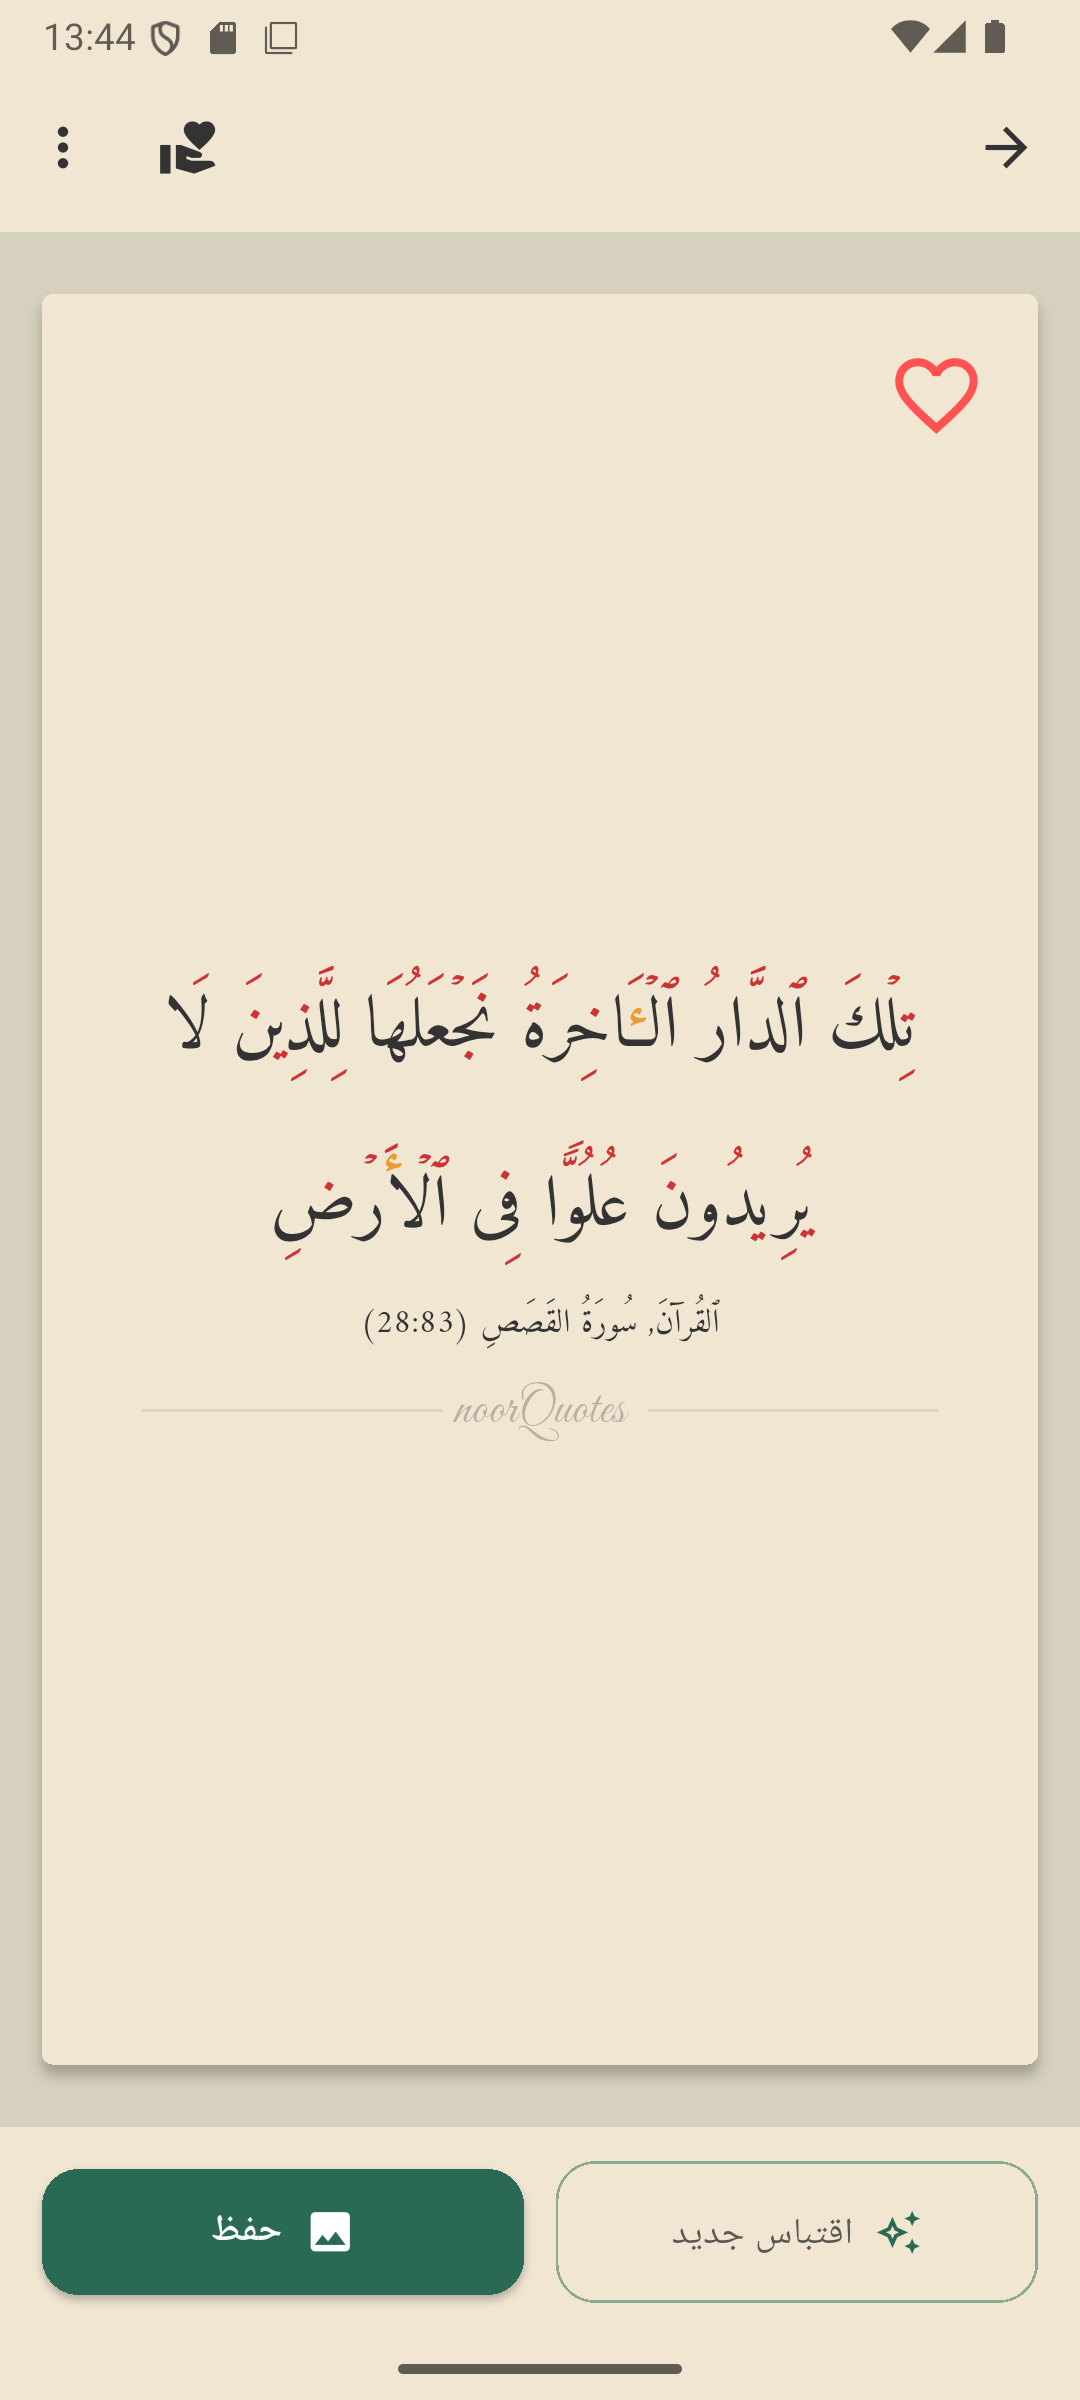 13:44
تِلۡكَ ٱلدَّارُ ٱلۡـَٔاخِرَةُ نَجۡعَلُهَا لِلَّذِينَ لَا
يُرِيدُونَ عُلُوّٗا فِى ٱلۡأَرۡضِ
ٱلقُرآنَ, سُورَةُ القَصَصِ (28:83)
noorQuotes
اقتباس جديد
حفظ